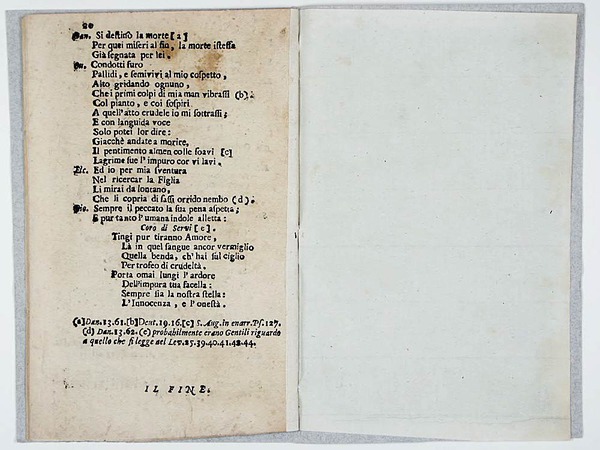 20
Dan. Si destinò la morte [a]
Per quei miseri al fin, la morte istessa
Già segnata per lei.
Condotti furo
Pallidi, e semivivi al mio cospetto,
Alto gridando ognuno,
Che i primi colpi di mia man vibrassi (b).
Col pianto, e coi sospiri
A quell'atto crudele io mi sottrassi;
E con languida voce
Solo potei lor dire:
Giacchè andate a morire,
Il pentimento almen colle soavi [c]
Lagrime sue l'impuro cor vi lavi.
Elc. Ed io per mia sventura
Nel ricercar la Figlia
Li mirai da lontano,
Che li copria di sassi orrido nembo (d).
Gio. Sempre il peccato la sua pena aspetta;
E pur tanto l'umana indole alletta:
Coro di Servi [e].
Tingi pur tiranno Amore,
Là in quel sangue ancor vermiglio
Quella benda, ch'hai sul ciglio
Per trofeo di crudeltà.
Porta omai lungi l'ardore
Dell'impura tua facella:
Sempre sia la nostra stella:
L'Innocenza, e l'onestà.
(a) Dan. 13. 61. [b] Deut. 19. 16. [c] S. Aug. in enarr. Ps. 127.
(d) Dan. 13. 62. (e) probabilmente erano Gentili riguardo
a quello che si legge nel Lev. 25. 39. 40. 41. 42. 44.
IL FINE.